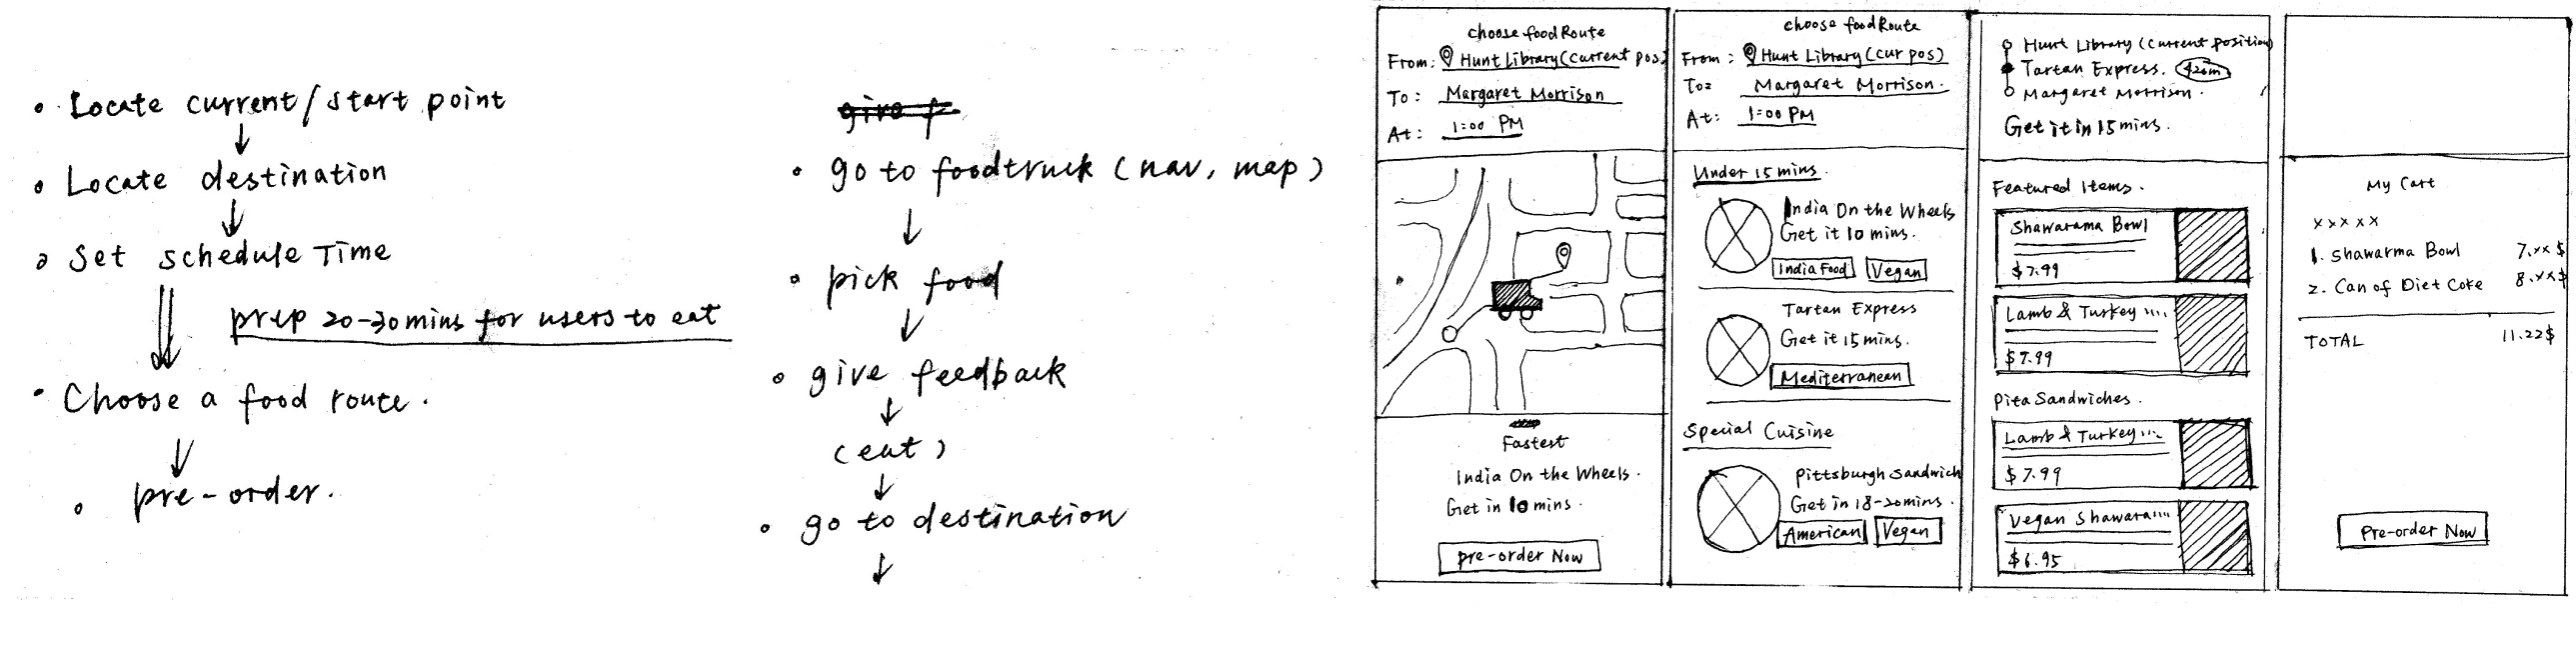 Locate current/start point
Locate destination
Set schedule Time
prep 20-30mins for users to eat
Choose a food route.
pre-order.
give f
go to foodtruck (nav, map)
pick food
give feedback
(eat)
go to destination
choose food Route
From: Hunt Library (current pos)
To: Margaret Morrison
At: 1:00 PM
Fastest
India On the Wheels.
Get in 10 mins.
pre-order Now
choose food Route
From: Hunt Library (cur pos)
To: Margaret Morrison.
At: 1:00 PM
Under 15 mins.
India On the Wheels
Get it 10 mins.
India Food Vegan
Tartan Express
Get it 15 mins.
Mediterranean
Special Cuisine
Pittsburgh Sandwich
Get in 18-20mins.
American Vegan
Hunt Library (current position)
Tartan Express.
Margaret Morrison.
Get it in 15 mins.
Featured Items.
Shawarama Bowl
$7.99
Lamb & Turkey ....
$7.99
Pita Sandwiches.
Lamb & Turkey ...
$7.99
Vegan Shawara....
$6.95
My Cart
xxxxx
1. Shawarma Bowl 7.xx $
2. Can of Diet Coke 8.xx $
TOTAL 11.22$
Pre-order Now